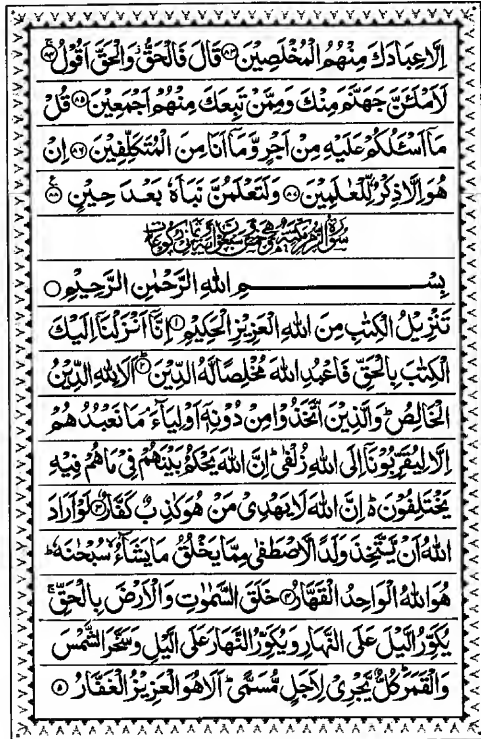 اِلَّا عِبَادَكَ مِنْهُمُ الْمُخْلَصِيْنَ ۝۸۳ قَالَ فَالْحَقُّ ؗ وَالْحَقَّ اَقُوْلُ ۝۸۴
لَاَمْلَـَٔنَّ جَهَنَّمَ مِنْكَ وَمِمَّنْ تَبِعَكَ مِنْهُمْ اَجْمَعِيْنَ ۝۸۵ قُلْ
مَاۤ اَسْـَٔلُكُمْ عَلَيْهِ مِنْ اَجْرٍ وَّمَاۤ اَنَا مِنَ الْمُتَكَلِّفِيْنَ ۝۸۶ اِنْ
هُوَ اِلَّا ذِكْرٌ لِّلْعٰلَمِيْنَ ۝۸۷ وَلَتَعْلَمُنَّ نَبَاَهٗ بَعْدَ حِيْنٍ ۝۸۸
سُوْرَةُ الزُّمَرِ مَكِّيَّةٌ وَّهِيَ خَمْسٌ وَّسَبْعُوْنَ اٰيَةً وَّثَمَانُ رُكُوْعَاتٍ
بِسْمِ اللهِ الرَّحْمٰنِ الرَّحِيْمِ ۝
تَنْزِيْلُ الْكِتٰبِ مِنَ اللهِ الْعَزِيْزِ الْحَكِيْمِ ۝۱ اِنَّاۤ اَنْزَلْنَاۤ اِلَيْكَ
الْكِتٰبَ بِالْحَقِّ فَاعْبُدِ اللهَ مُخْلِصًا لَّهُ الدِّيْنَ ۝۲ اَلَا لِلّٰهِ الدِّيْنُ
الْخَالِصُ ؕ وَالَّذِيْنَ اتَّخَذُوْا مِنْ دُوْنِهٖۤ اَوْلِيَآءَ ۘ مَا نَعْبُدُهُمْ
اِلَّا لِيُقَرِّبُوْنَاۤ اِلَى اللهِ زُلْفٰى ؕ اِنَّ اللهَ يَحْكُمُ بَيْنَهُمْ فِيْ مَا هُمْ فِيْهِ
يَخْتَلِفُوْنَ ؕ۬ اِنَّ اللهَ لَا يَهْدِيْ مَنْ هُوَ كٰذِبٌ كَفَّارٌ ۝۳ لَوْ اَرَادَ
اللهُ اَنْ يَّتَّخِذَ وَلَدًا لَّاصْطَفٰى مِمَّا يَخْلُقُ مَا يَشَآءُ ۙ سُبْحٰنَهٗ ؕ
هُوَ اللهُ الْوَاحِدُ الْقَهَّارُ ۝۴ خَلَقَ السَّمٰوٰتِ وَالْاَرْضَ بِالْحَقِّ ۚ
يُكَوِّرُ الَّيْلَ عَلَى النَّهَارِ وَيُكَوِّرُ النَّهَارَ عَلَى الَّيْلِ وَسَخَّرَ الشَّمْسَ
وَالْقَمَرَ ؕ كُلٌّ يَّجْرِيْ لِاَجَلٍ مُّسَمًّى ؕ اَلَا هُوَ الْعَزِيْزُ الْغَفَّارُ ۝۵